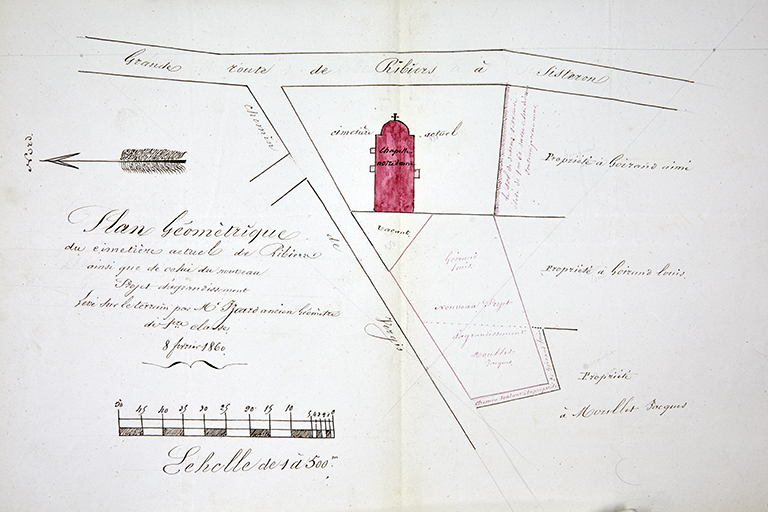 Grande route de Ribiers à Sisteron
Nord
chemin
de
Vergis
cimetière actuel
Chapelle
notre dame
Propriété à Goirand aimé
Plan Géométrique
du cimetière actuel de Ribiers
ainsi que de celui du nouveau
Projet d'agrandissement
Levé sur le terrain par Mr ancien Géomètre
de 1re classe
8 février 1860
vacant
Goirand
louis
Nouveau Projet
d'agrandissement
Moullet
Jacques
Propriété à Goirand louis
Propriété
à Moullet Jacques
chemin
50 45 40 35 30 25 20 15 10 5
Echelle de 1 à 500m